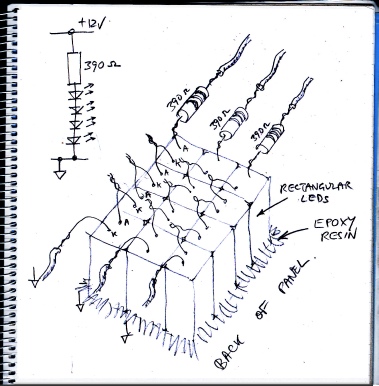 +12V
390Ω
390Ω
390Ω
390Ω
A
A
A
K
K
K
RECTANGULAR
LEDS
EPOXY
RESIN
BACK OF PANEL